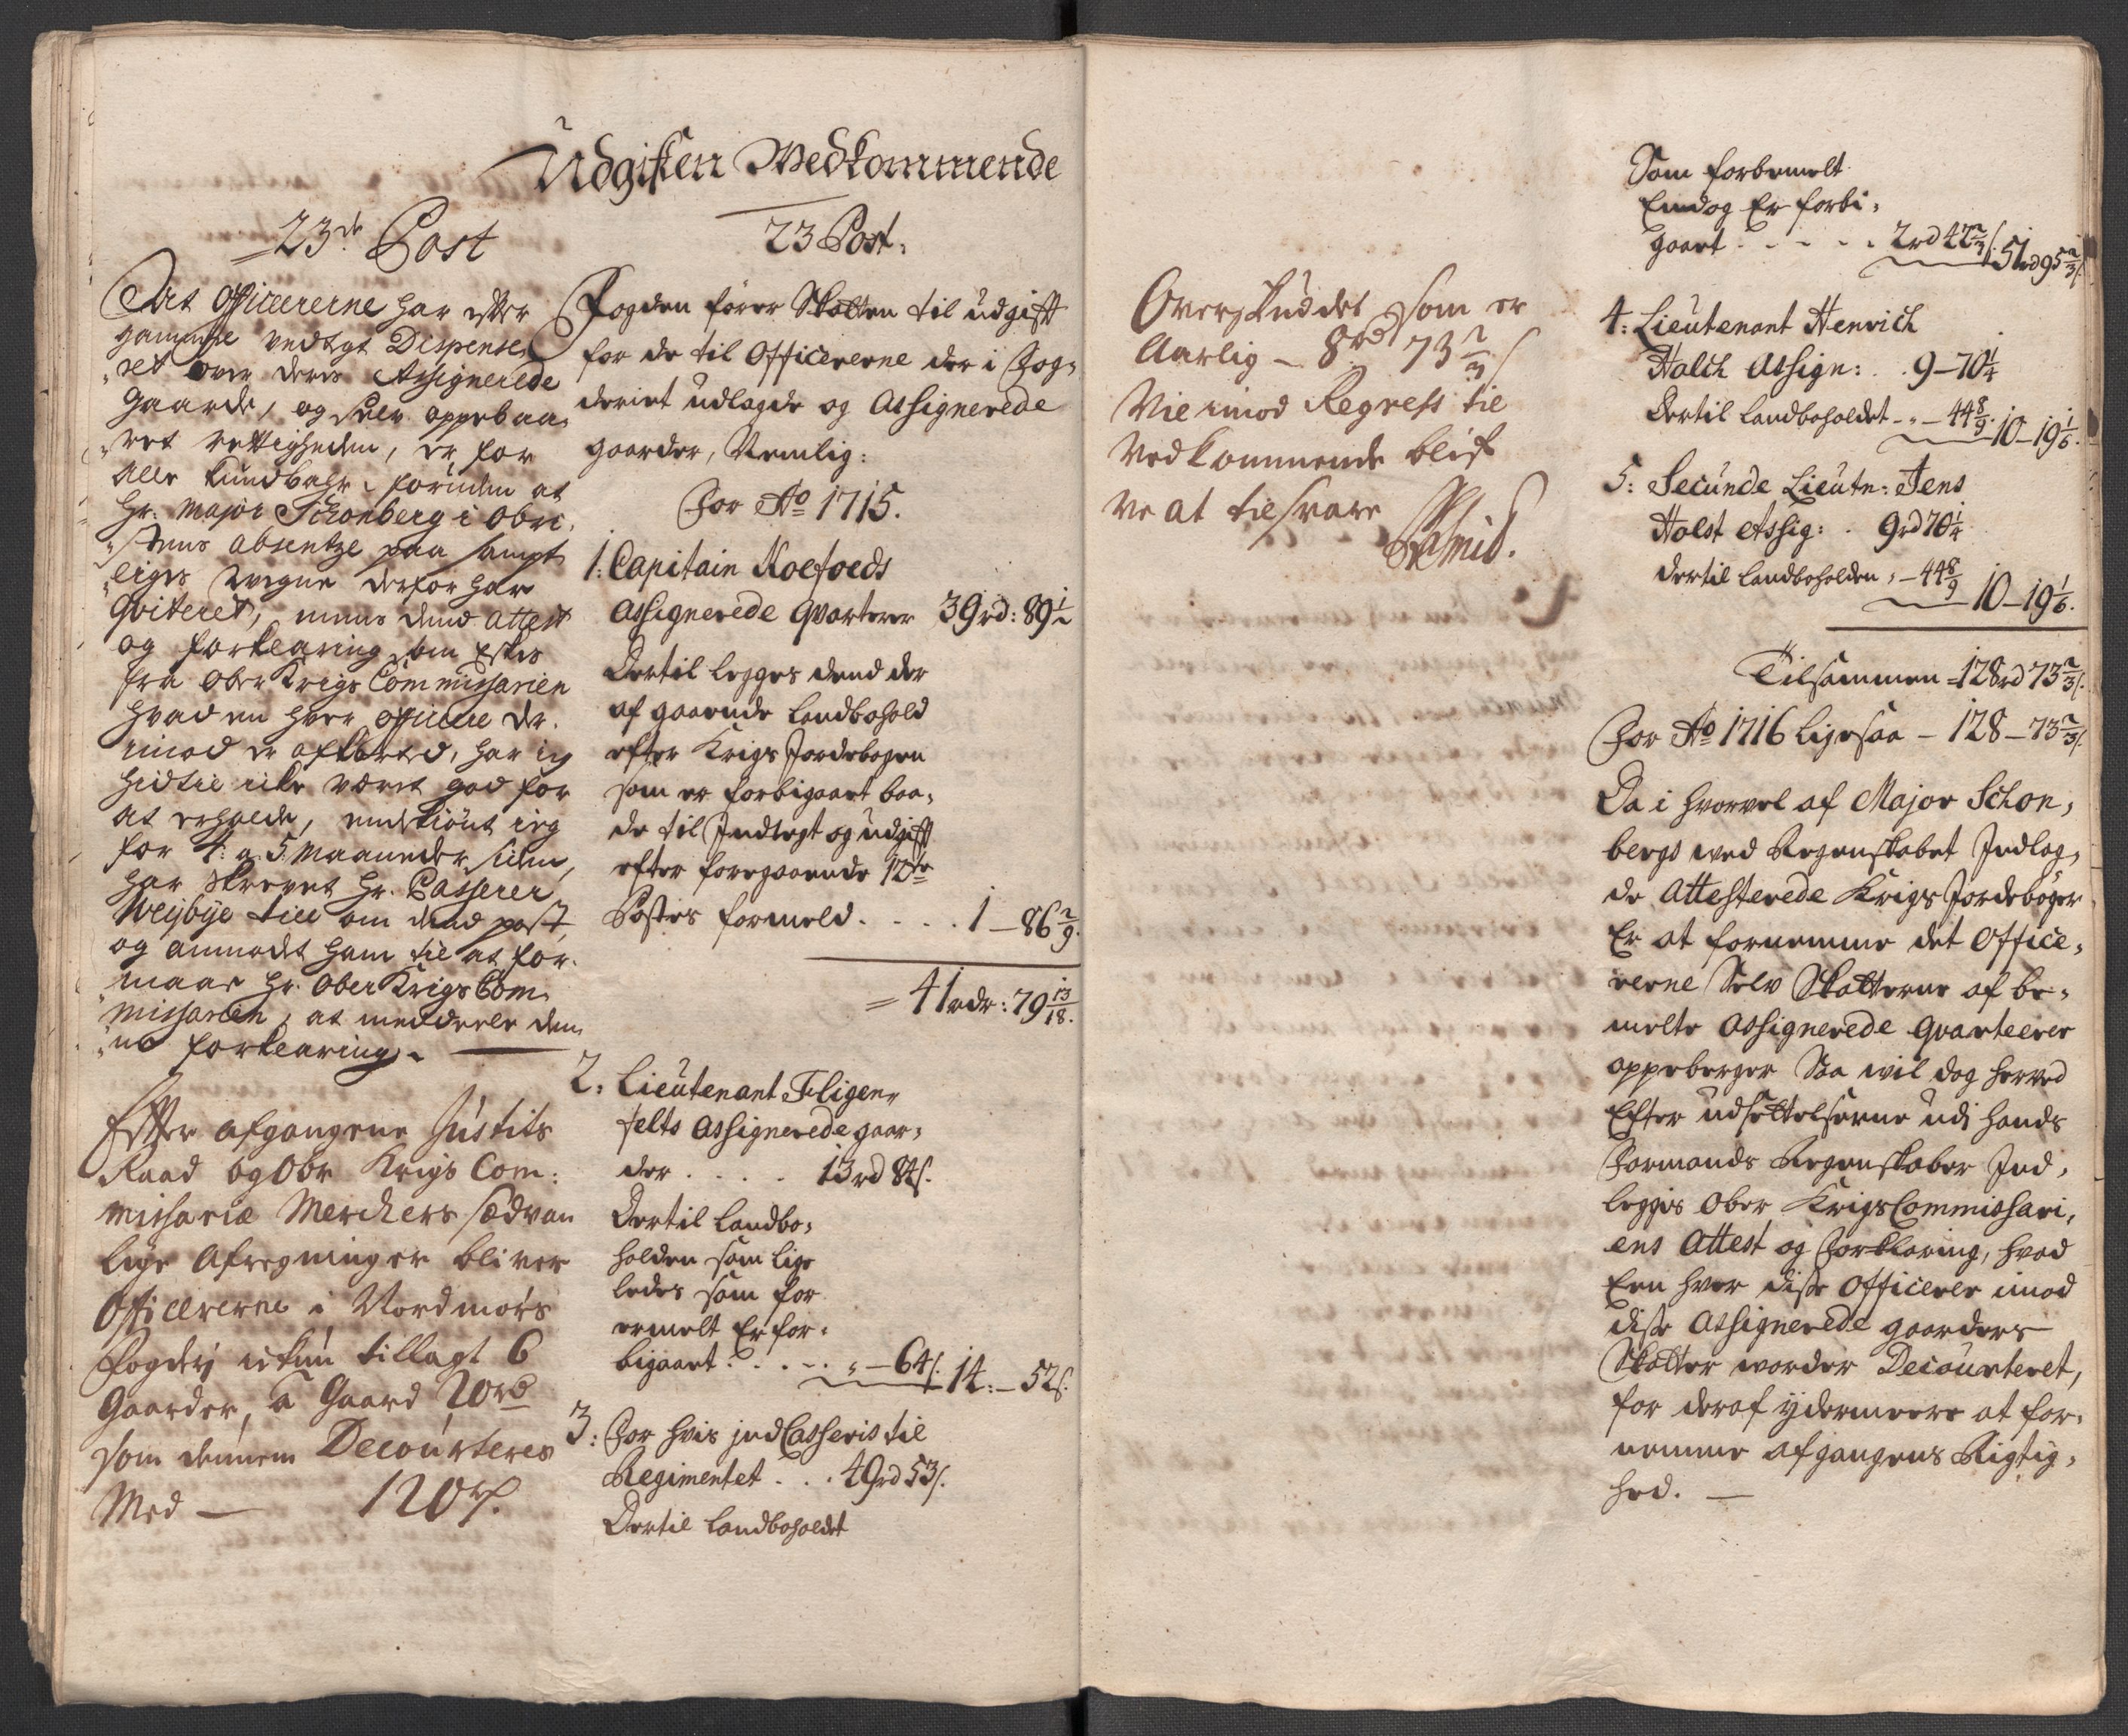 Udgiften Wedkommende
23de Post
At Officererne har efter
gammel vedtegt Dispense,
ret over deris Assignerede
Gaarde, og selv oppebaa,
ret rettigheden, er for
alle kundbahr, foruden at
Hr: Major Schonberg i Obri,
stens absentze paa sampt
liges Vegne derfor har
Qviteret, mens dend attest
og forklaring som eskes
fra Ober Krigs Commissarien
hvad en hver officerer der,
imod er afkorted, har ieg
hidtil icke været god for
at erholde, endskiønt ieg
for 4 a 5 Maaneder siden,
har skrevet Hr. Casserer
Weybye till om dend post,
og anmodet ham til at for,
maae Hr. Ober Krigs Com,
missarien, at meddeele den,
ne forklaring.
Efter afgangene Justits
Raad og Obr Krigs Com:
missariæ Merchers sædvan
lige Afregninger bliver
Officererne i Nordmørs
Fogderj ickun tillagt 6
Gaarder, a Gaard 20rd
som dennem Decourteres
Med — 120rd.
23 Post.
Fogden fører Skatten til udgifft
for de til Officererne der i Fog,
deriet udlagde og Assignerede
gaarder, Nemlig:
For Ao 1715.
1: Capitain Koefoeds
Assignerede Qvarterer 39rd: 89½
Dertil legges dend der
af gaaende Landbohold
efter Krigs Jordebogen
som er forbigaaet baa,
de til Indtegt og udgifft
efter foregaaende 12te
Postes formeld . . . . 1 – 86 2/9.
= 41rdr: 79 13/18.
2: Lieutenant Fligen,
felts Assignerede gaar,
der . . . . 13rd 84s.
Dertil Landbo,
holden som lige
ledes som for
ermelt Er for,
bigaaet . . . . „ – 64s. 14: – 52s.
3: For hvis jndCasseris til
Regimentet . . . 49rd 53s.
Dertil Landboholdet
Overskuddet som er
Aarlig – 8rd 73 2/3 s
Vil imod Regress til
Vedkommende blif
ve at tilsvare
Schmid.
Som forbemelt
Endog Er forbi,
gaaet . . . . . 2rd 42 2/3 s. 51rd 95 2/3 s.
4: Lieutenant Henrich
Holch Assign: . . 9 – 70¼
Dertil Landboholdet – „ – 44 8/9. 10 – 19 1/6.
5: Secunde Lieutn: Jens
Holst Assig: . 9rd 70¼
dertil Landboholden „ – 44 8/9 10 – 19 1/6.
Tilsammen = 128rd 73 2/3 s.
For Ao 1716 Ligesaa – 128 – 73 2/3 s.
Da i hvorvel af Major Schon,
bergs wed Regenskabet Indlag,
de Attesterede Krigs Jordebøger
Er at fornemme det Office,
rerne Selv Skatterne af be,
melte Assignerede Qvarteerer
oppeberger Saa wil dog herved
Efter udsettelserne udj hands
Formands Regenskaber Ind,
legges Ober KrigsCommissari,
ens Attest og Forklaring, hvad
Een hver disse Officerer imod
disse Assignerede gaarders
Skatter worder Decourteret,
for deraf ydermeere at for,
nemme afgangens Rigtig,
hed. —